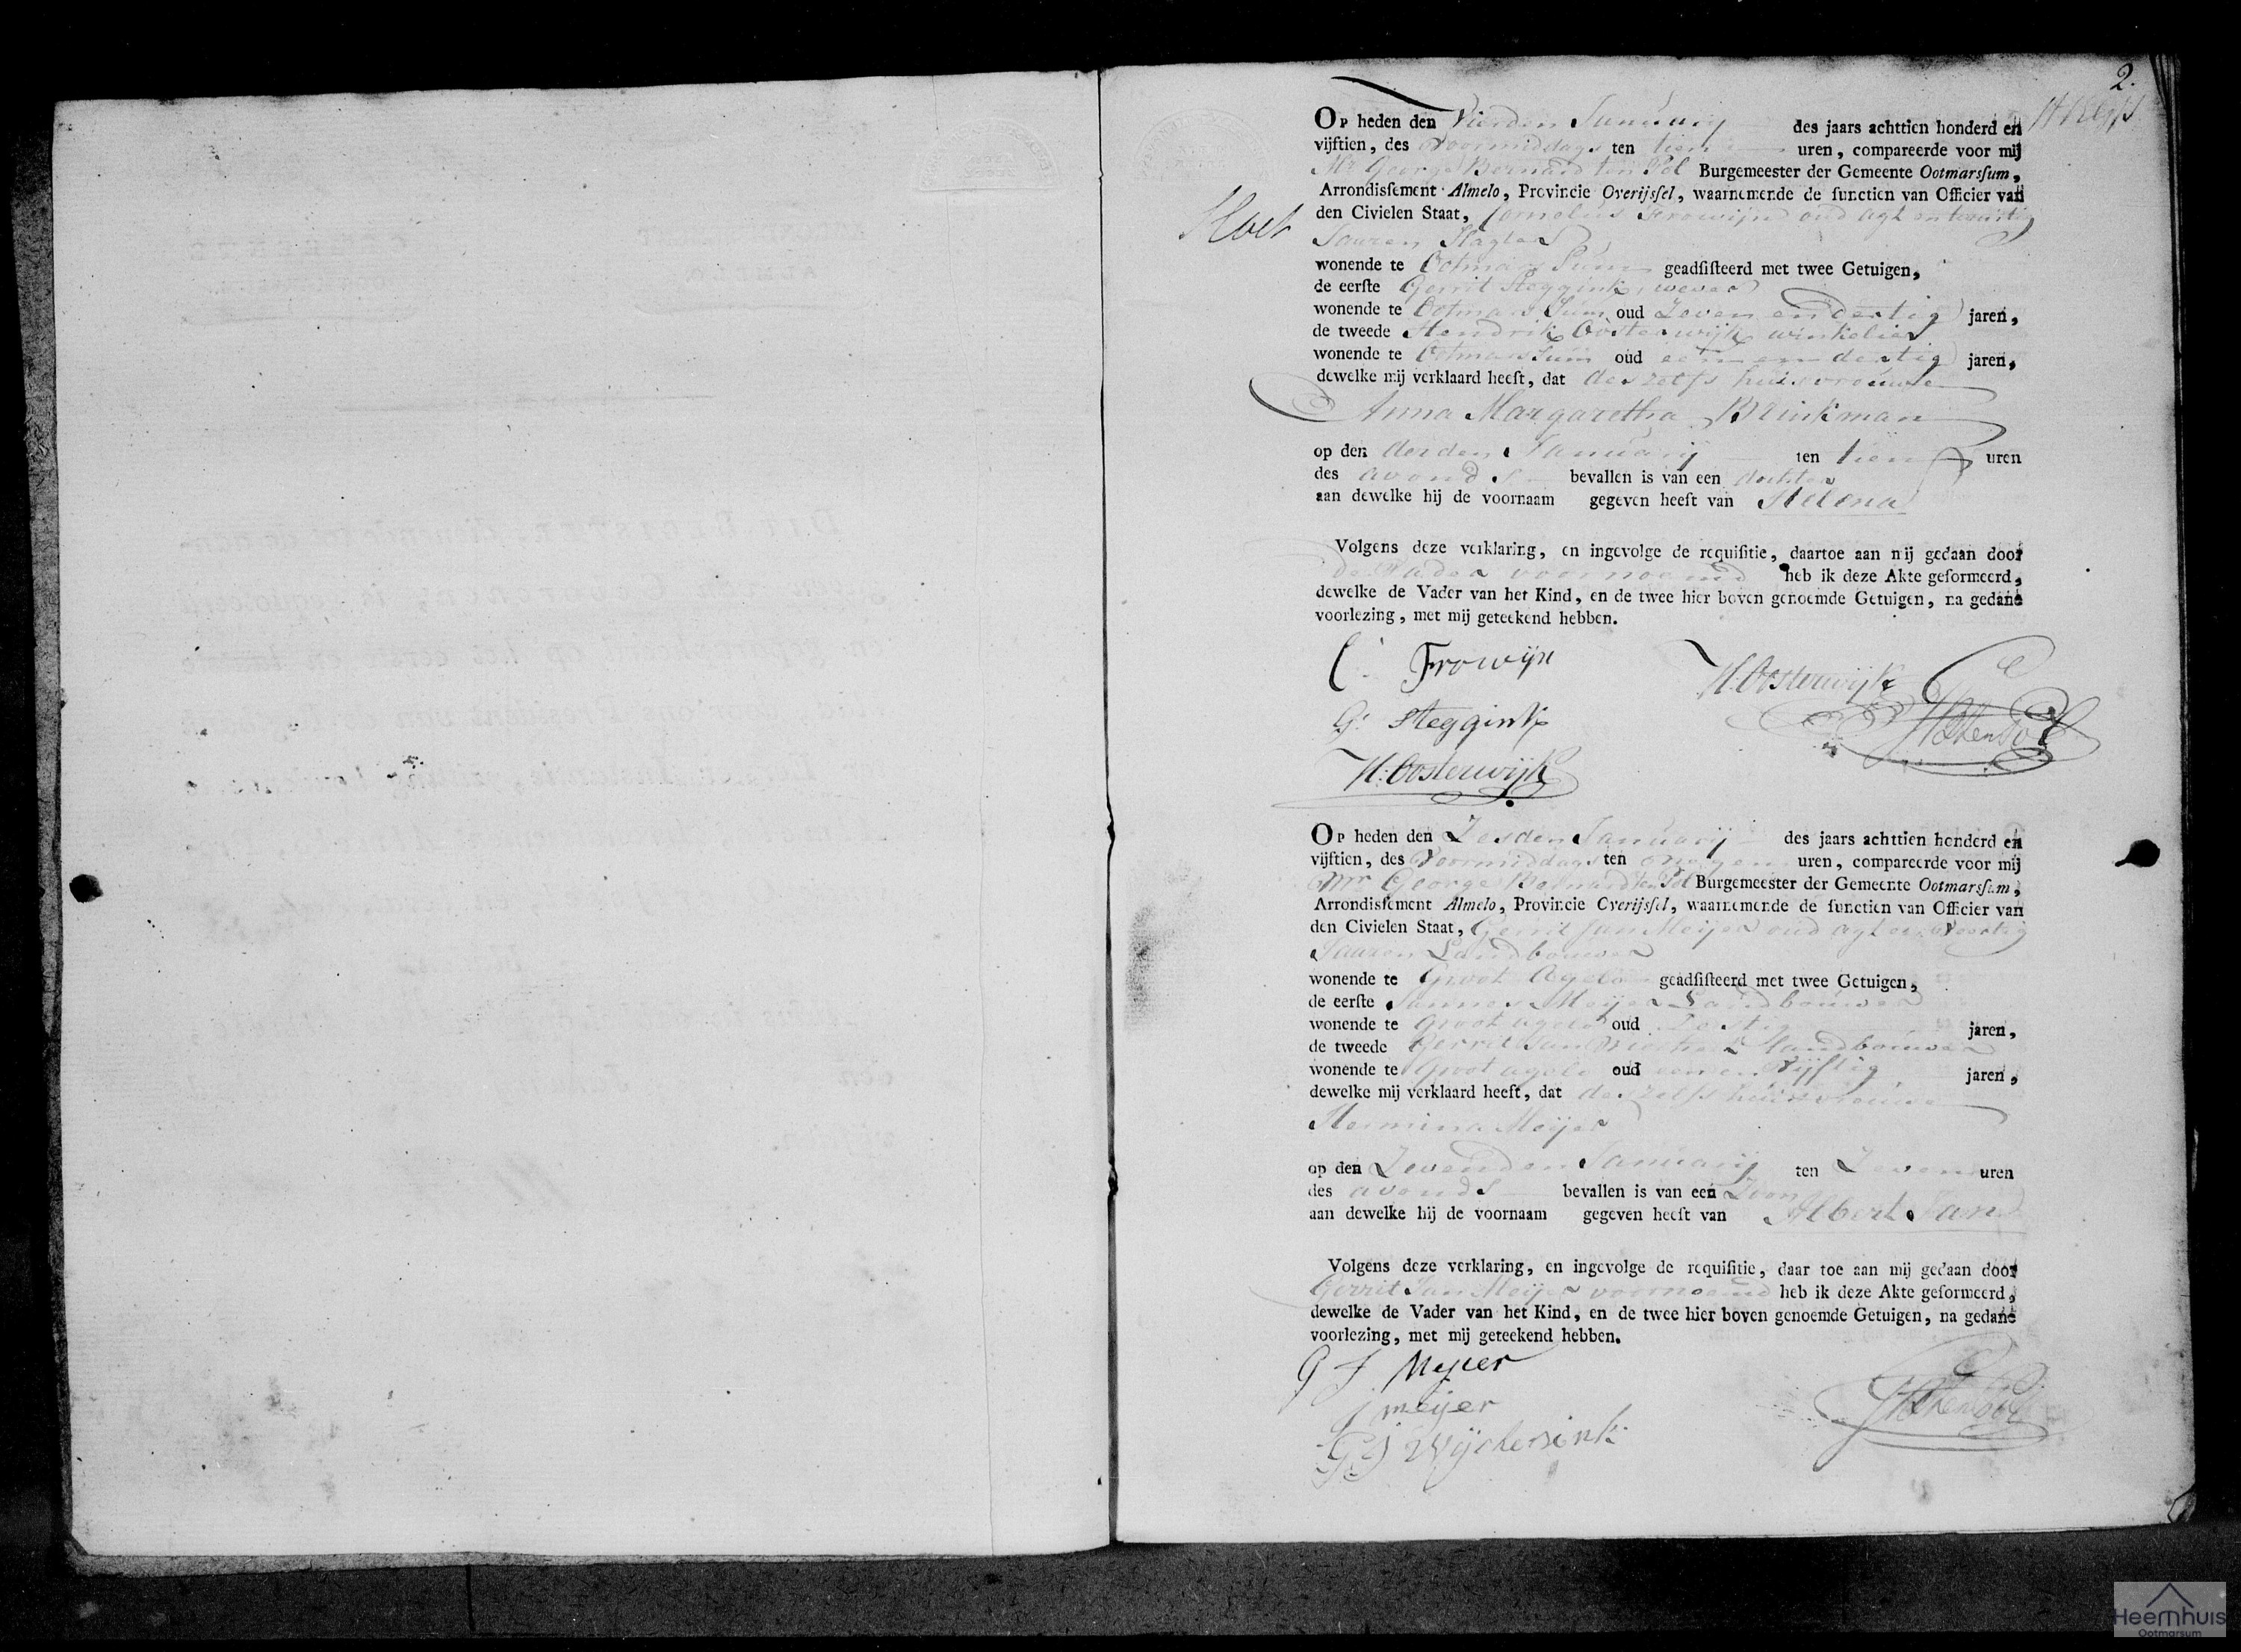 2.
Op heden den Vierden Januarij des jaars achttien honderd en
vijftien, des Voormiddags ten tien uren, compareerde voor mij
Mr George Bernard ten Pol Burgemeester der Gemeente Ootmarsſum,
Arrondisſement Almelo, Provincie Overijsſel, waarnemende de functien van Officier van
den Civielen Staat, Cornelius Frowijn oud agt en twintig
Jaaren Slagter
wonende te Ootmarssum geadſiſteerd met twee Getuigen,
de eerſte Gerrit Steggink, wever
wonende te Ootmarssum oud Zeven en dertig jaren,
de tweede Hendrik Oosterwijk winkelier
wonende te Ootmarssum oud een en dertig jaren,
dewelke mij verklaard heeft, dat deszelfs huisvrouwe
Anna Margaretha Brinkman
op den derden Januarij ten tien uren
des avonds bevallen is van een dochter
aan dewelke hij de voornaam gegeven heeft van Helena
Volgens deze verklaring, en ingevolge de requiſitie, daartoe aan mij gedaan door
de Vader voornoemd heb ik deze Akte geformeerd,
dewelke de Vader van het Kind, en de twee hier boven genoemde Getuigen, na gedane
voorlezing, met mij geteekend hebben.
C. Frowijn
H. Oosterwijk
G. Steggink
H: Oosterwijk
Op heden den Zesden Januarij des jaars achttien honderd en
vijftien, des Voormiddags ten negen uren, compareerde voor mij
Mr George Bernard ten Pol Burgemeester der Gemeente Ootmarsſum,
Arrondisſement Almelo, Provincie Overijsſel, waarnemende de functien van Officier van
den Civielen Staat, Gerrit Jan Meijer oud agt en veertig
Jaaren Landbouwer
wonende te Groot Agelo geadſiſteerd met twee Getuigen,
de eerſte Jannes Meijer Landbouwer
wonende te Groot agelo oud jaren,
de tweede Gerrit Jan landbouwer
wonende te Groot agelo oud een en Vijftig jaren,
dewelke mij verklaard heeft, dat deszelfs huisvrouwe
Hermina Meijer
op den Zevenden Januarij ten Zeven uren
des avonds bevallen is van een Zoon
aan dewelke hij de voornaam gegeven heeft van Albert Jan
Volgens deze verklaring, en ingevolge de requiſitie, daar toe aan mij gedaan door
Gerrit Jan Meijer voornoemd heb ik deze Akte geformeerd,
dewelke de Vader van het Kind, en de twee hier boven genoemde Getuigen, na gedane
voorlezing, met mij geteekend hebben.
G J Meyer
J meijer
GJ Wijchersink
Heemhuis
Ootmarsum